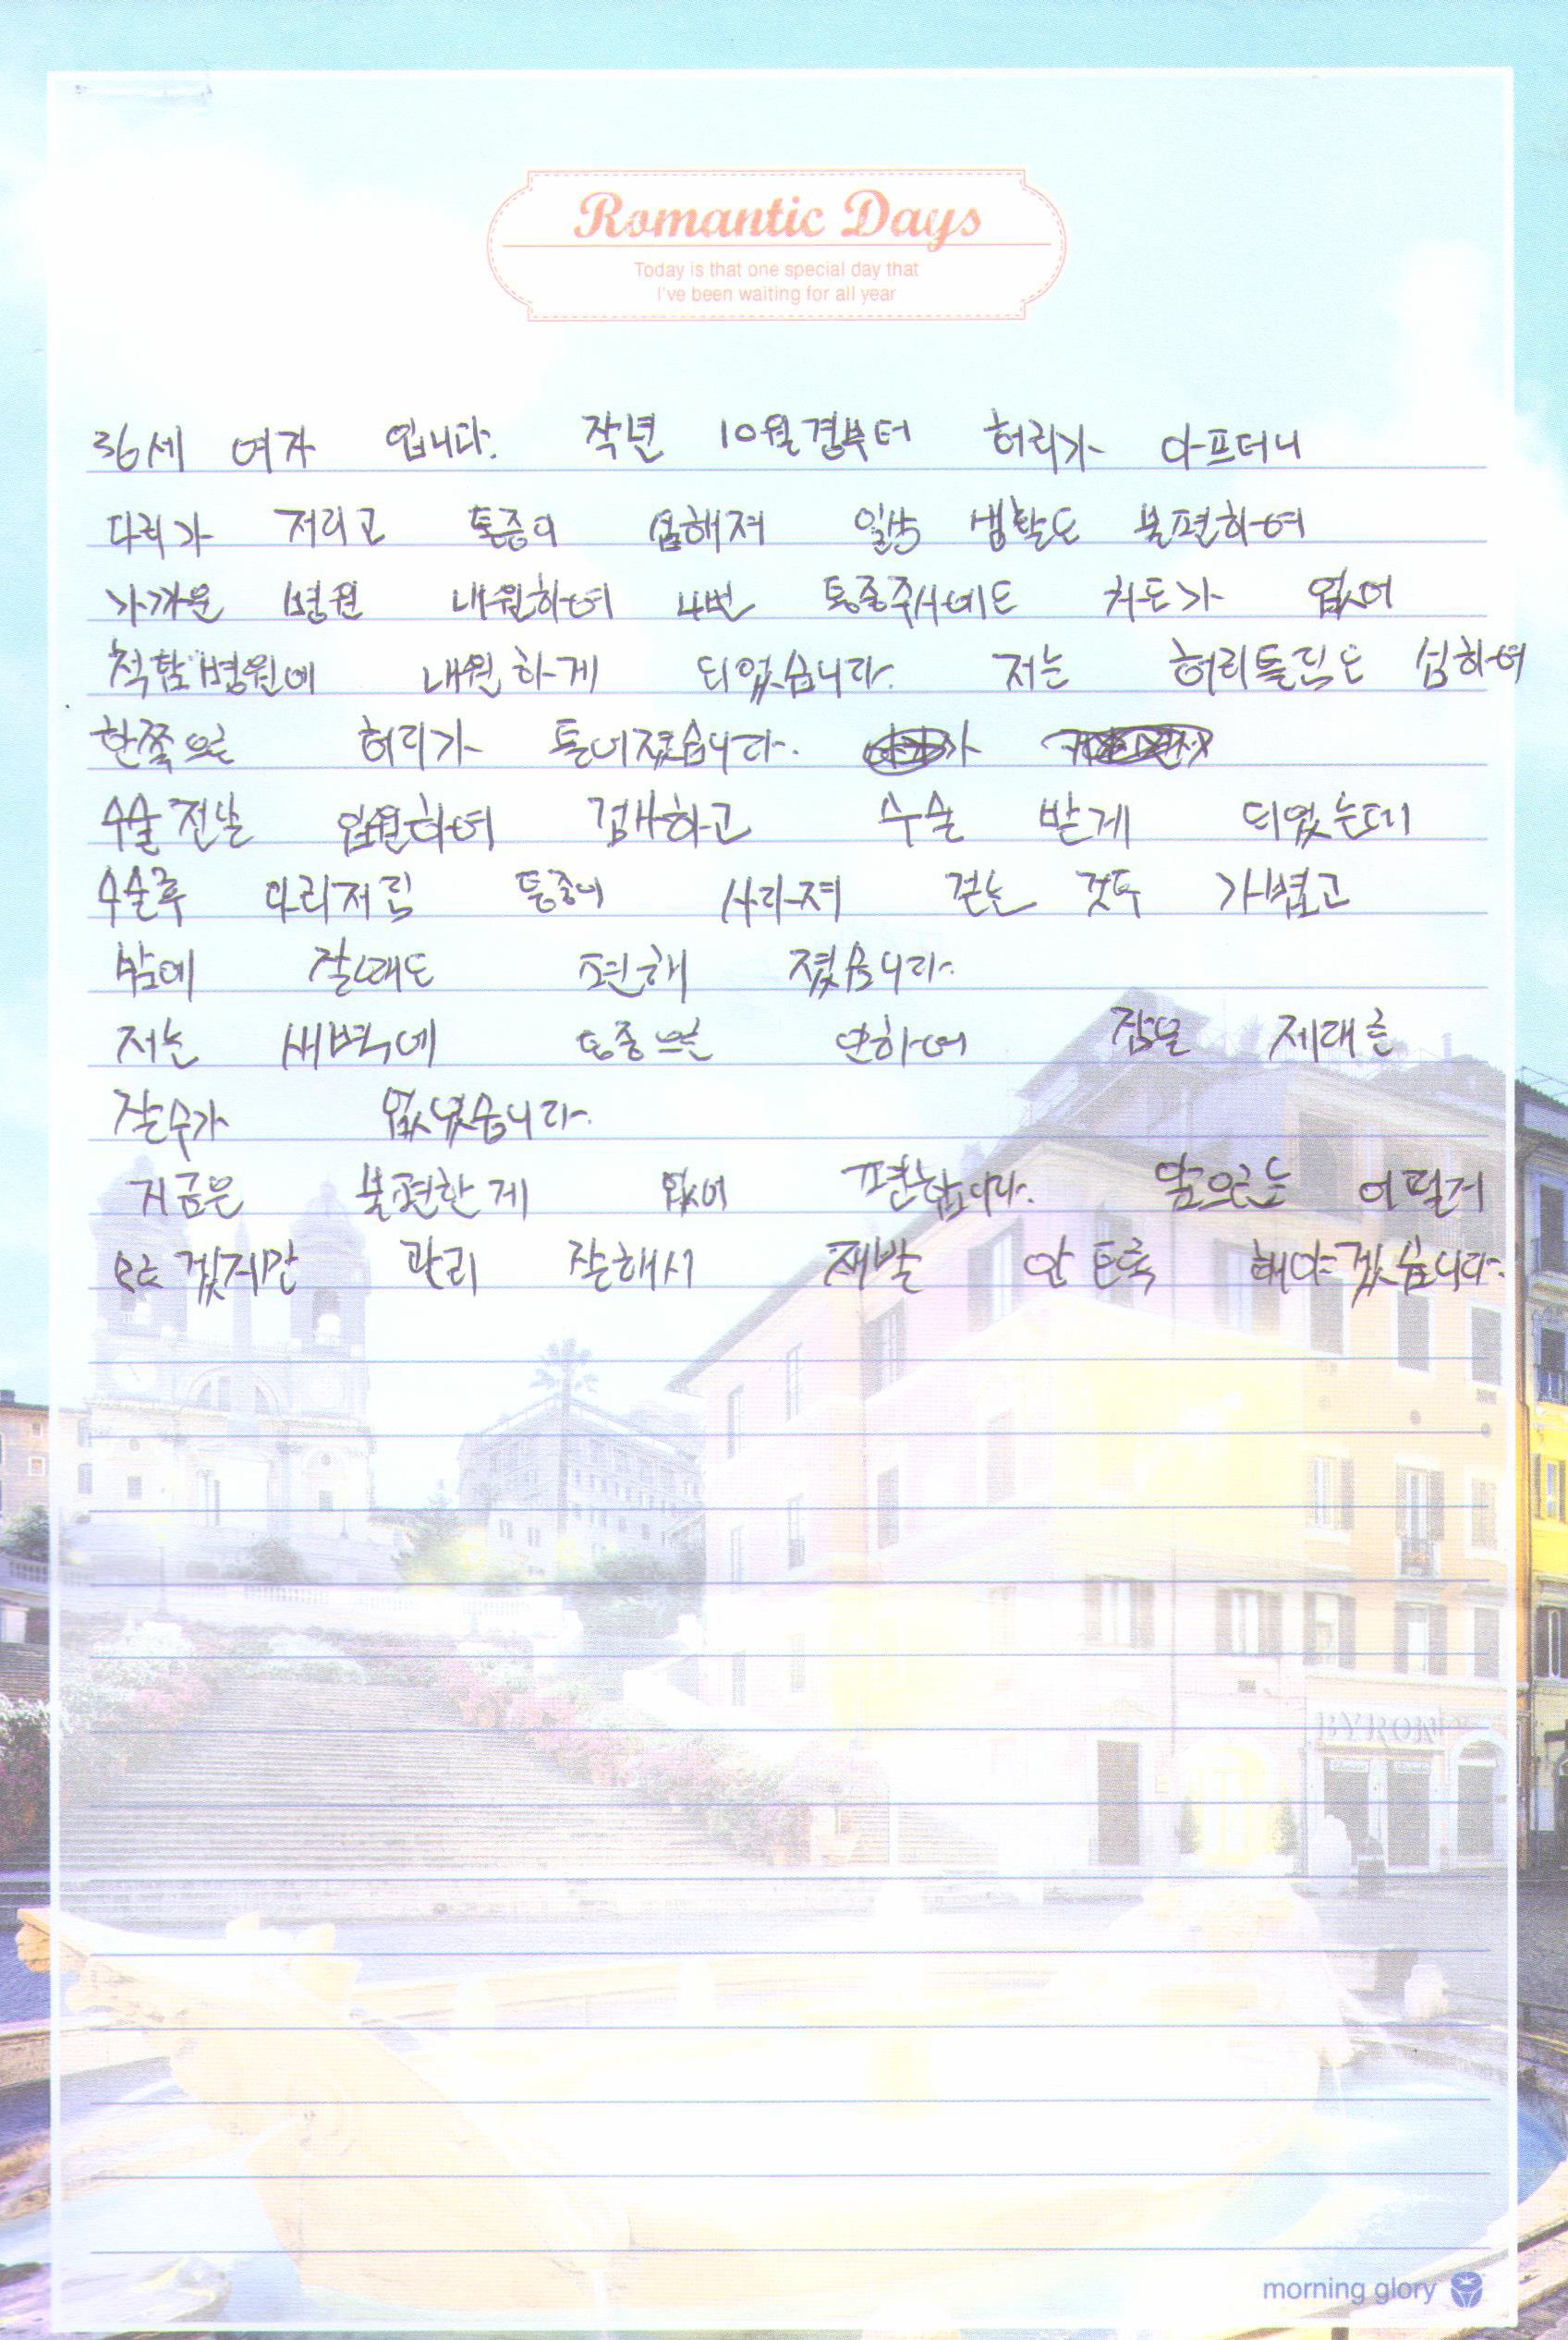 Romantic Days
Today is that one special day that
I've been waiting for all year
36세 여자 입니다. 작년 10월경부터 허리가 아프더니
다리가 저리고 통증이 심해져 일상 생활도 불편하여
가까운 병원 내원하여 4번 통증주사에도 차도가 없어
척탑병원에 내원하게 되었습니다. 저는 허리틀림도 심하여
한쪽으로 허리가 틀어졌습니다. 가
수술전날 입원하여 검사하고 수술 받게 되었는데
수술후 다리저림 통증이 사라져 걷는 것도 가볍고
밤에 잘때도 편해 졌습니다.
저는 새벽에 통증으로 인하여 잠을 제대로
잘수가 없었습니다.
지금은 불편한게 없어 편합니다. 앞으로는 어떨지
모르겠지만 관리 잘해서 재발 안 되도록 해야겠습니다.
morning glory